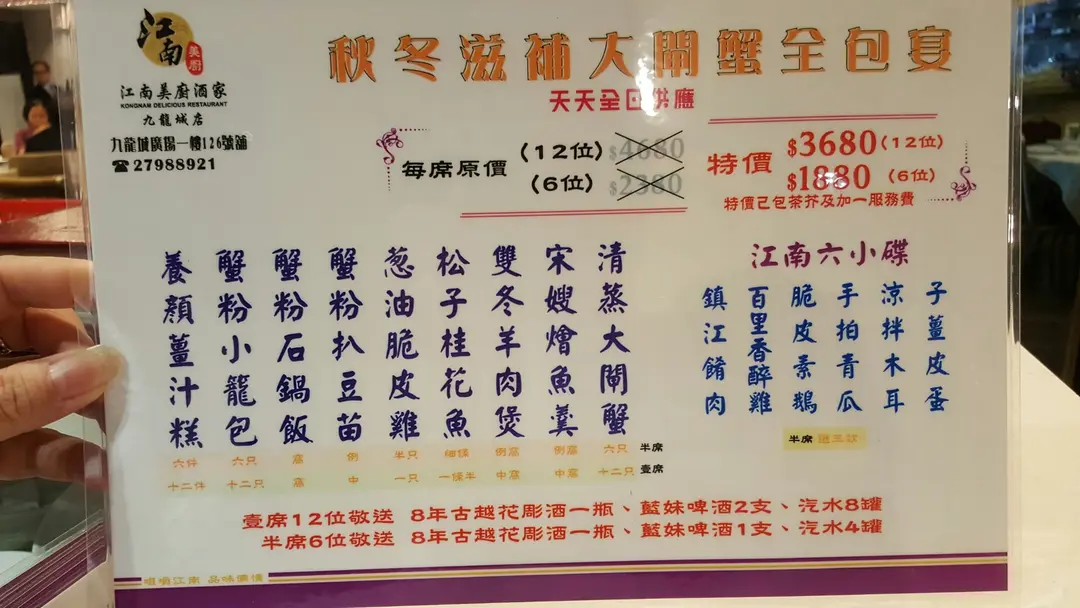 江南
美廚
江南美廚酒家
KONGNAM DELICIOUS RESTAURANT
九龍城店
九龍城廣場一樓126號舖
☎27988921
秋冬滋補大閘蟹全包宴
天天全日供應
每席原價 (12位) $4680
(6位) $2380
特價 $3680 (12位)
$1880 (6位)
特價已包茶芥及加一服務費
清蒸大閘蟹
宋嫂燴魚羹
雙冬羊肉煲
松子桂花魚
葱油脆皮雞
蟹粉扒豆苗
蟹粉石鍋飯
蟹粉小籠包
養顏薑汁糕
六件 六只 窩 例 半只 細條 例窩 例窩 六只 半席
十二件 十二只 窩 中 一只 一條半 中窩 中窩 十二只 壹席
江南六小碟
子薑皮蛋
涼拌木耳
手拍青瓜
脆皮素鵝
百里香醉雞
鎮江餚肉
半席 選三款
壹席12位敬送 8年古越花彫酒一瓶、藍妹啤酒2支、汽水8罐
半席6位敬送 8年古越花彫酒一瓶、藍妹啤酒1支、汽水4罐
品味